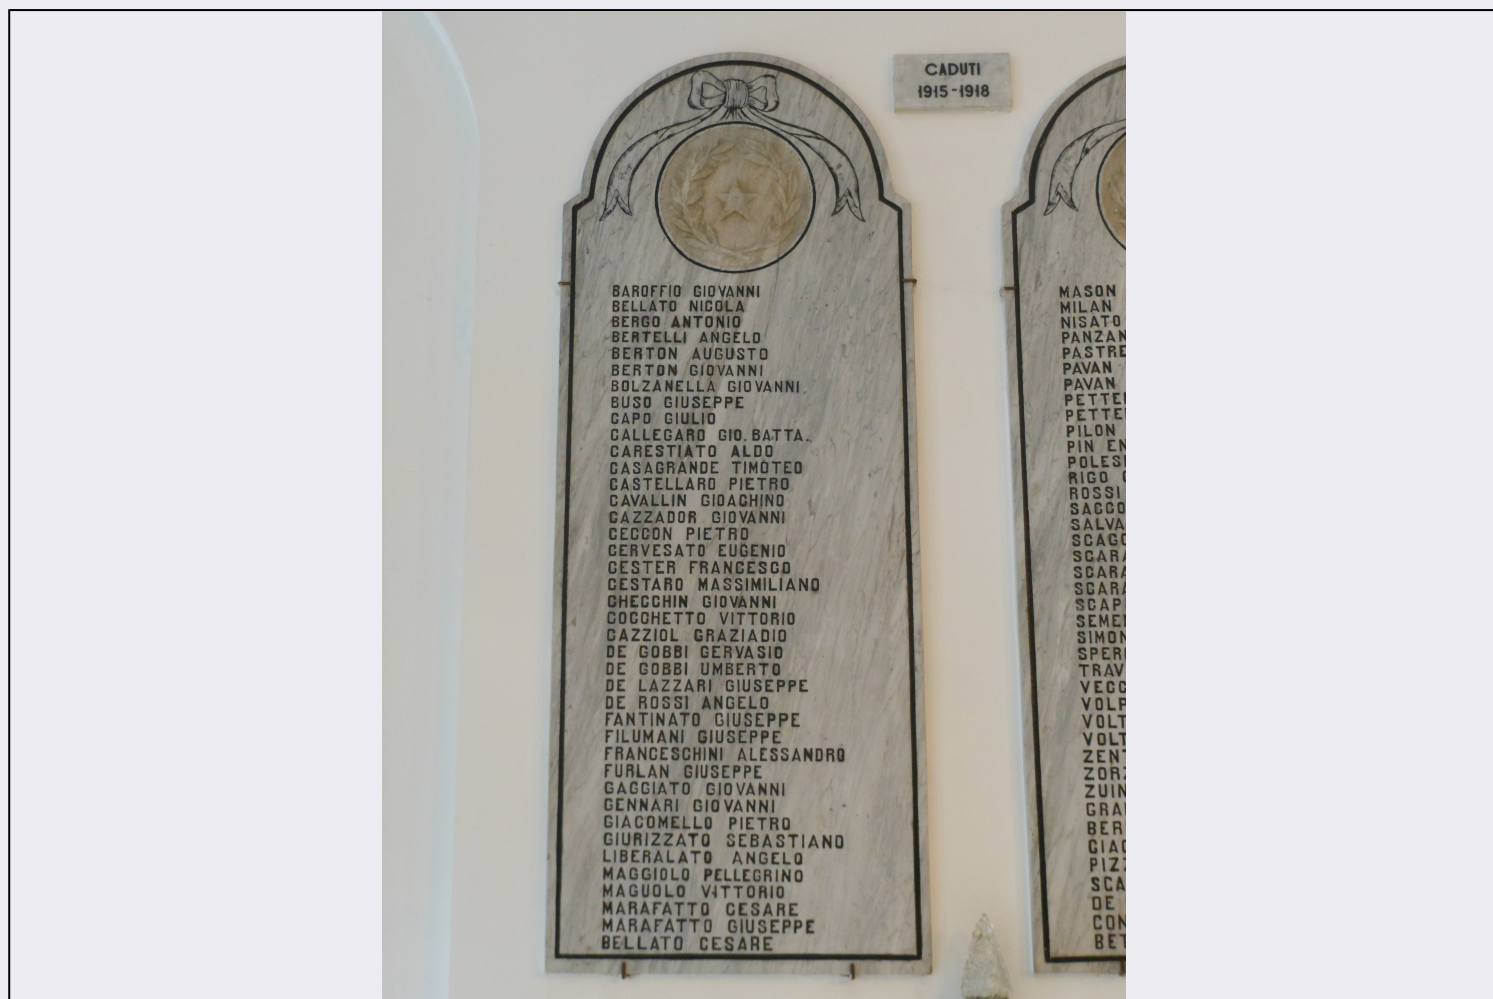 CADUTI
1915-1918
BAROFFIO GIOVANNI
BELLATO NICOLA
BERGO ANTONIO
BERTELLI ANGELO
BERTON AUGUSTO
BERTON GIOVANNI
BOLZANELLA GIOVANNI.
BUSO GIUSEPPE
CAPO GIULIO
CALLEGARO GIO. BATTA.
CARESTIATO ALDO
CASAGRANDE TIMOTEO
CASTELLARO PIETRO
CAVALLIN GIOACHINO
CAZZADOR GIOVANNI
CECCON PIETRO
CERVESATO EUGENIO
CESTER FRANCESCO
CESTARO MASSIMILIANO
CHECCHIN GIOVANNI
COCCHETTO VITTORIO
CAZZIOL GRAZIADIO
DE GOBBI GERVASIO
DE GOBBI UMBERTO
DE LAZZARI GIUSEPPE
DE ROSSI ANGELO
FANTINATO GIUSEPPE
FILUMANI GIUSEPPE
FRANCESCHINI ALESSANDRO
FURLAN GIUSEPPE
GAGGIATO GIOVANNI
GENNARI GIOVANNI
GIACOMELLO PIETRO
GIURIZZATO SEBASTIANO
LIBERALATO ANGELO
MAGGIOLO PELLEGRINO
MAGUOLO VITTORIO
MARAFATTO CESARE
MARAFATTO GIUSEPPE
BELLATO CESARE
MASON
MILAN
NISATO
PAVAN
PAVAN
PILON
PIN
RIGO
ROSSI
DE